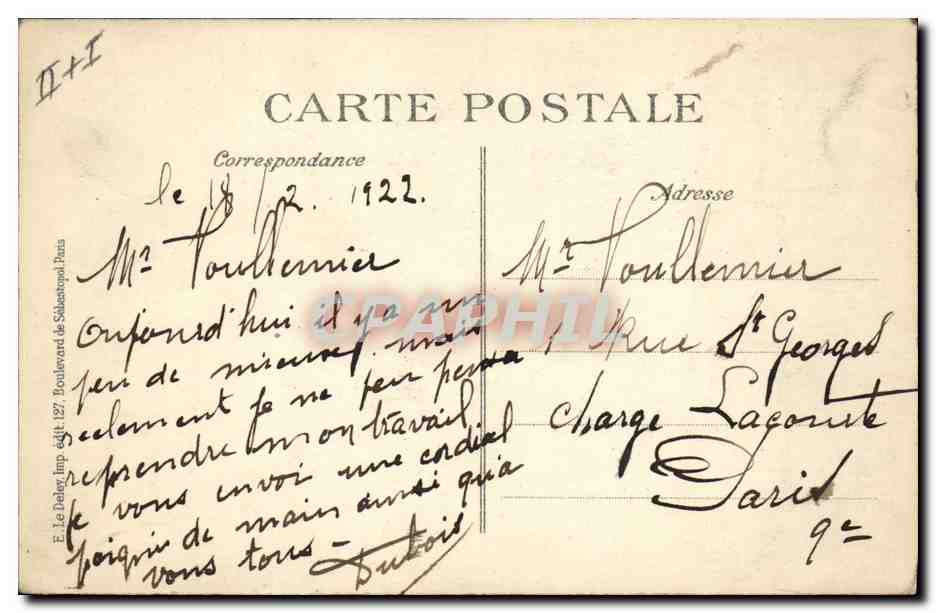 II + I
CARTE POSTALE
Correspondance
le 18/2. 1922.
Mr Voullemier
aujourd'hui il y a un
peu de mieux, mais
seelement je ne peu pas
reprendre mon travail
je vous envoi une cordial
poignée de main ainsi qu'a
vous tous -
Dubois
Adresse
Mr Voullemier
1 Rue St Georges
charge Lacoste
Paris
9e
E. Le Deley, Imp. édit. 127, Boulevard de Sébastopol, Paris
CPAPHIL